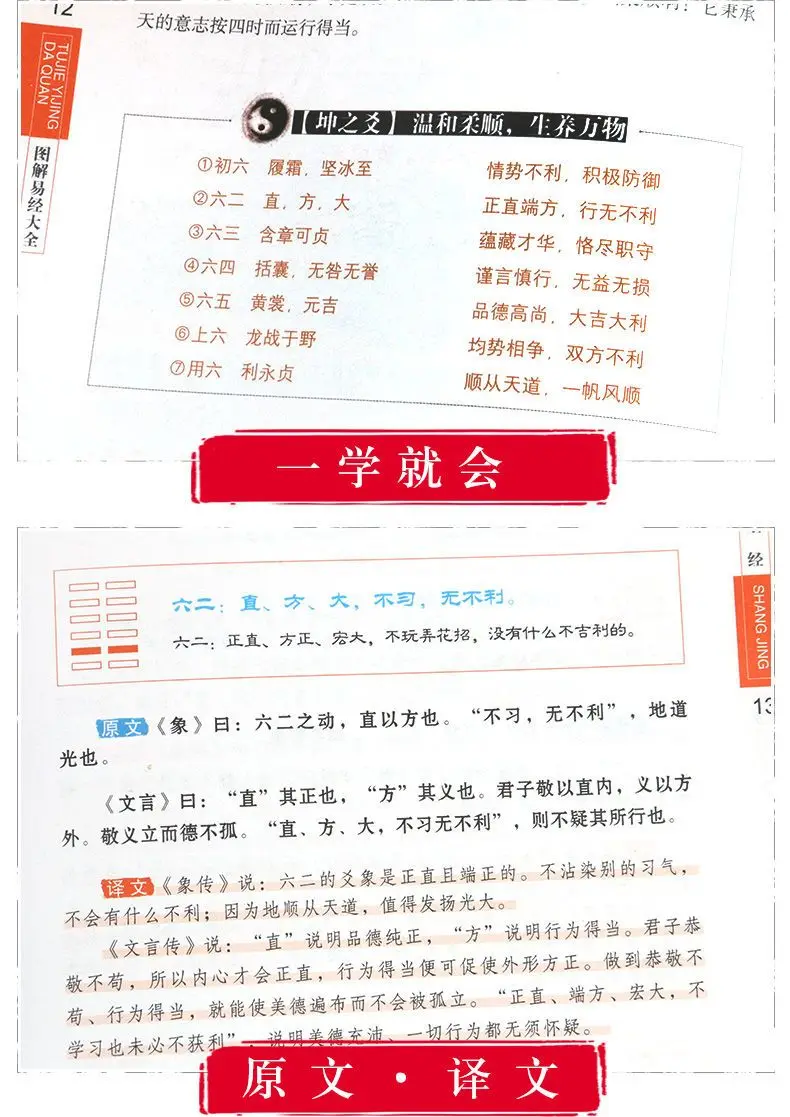 12
它秉承
天的意志按四时而运行得当。
TUJIE YIJING
DA QUAN
图解易经大全
【坤之爻】温和柔顺，生养万物
①初六 履霜，坚冰至 情势不利，积极防御
②六二 直，方，大 正直端方，行无不利
③六三 含章可贞 蕴藏才华，恪尽职守
④六四 括囊，无咎无誉 谨言慎行，无益无损
⑤六五 黄裳，元吉 品德高尚，大吉大利
⑥上六 龙战于野 均势相争，双方不利
⑦用六 利永贞 顺从天道，一帆风顺
一学就会
经
SHANG JING
13
六二：直、方、大，不习，无不利。
六二：正直、方正、宏大，不玩弄花招，没有什么不吉利的。
原文《象》曰：六二之动，直以方也。“不习，无不利”，地道
光也。
《文言》曰：“直”其正也，“方”其义也。君子敬以直内，义以方
外。敬义立而德不孤。“直、方、大，不习无不利”，则不疑其所行也。
译文《象传》说：六二的爻象是正直且端正的。不沾染别的习气，
不会有什么不利；因为地顺从天道，值得发扬光大。
《文言传》说：“直”说明品德纯正，“方”说明行为得当。君子恭
敬不苟，所以内心才会正直，行为得当便可促使外形方正。做到恭敬不
苟、行为得当，就能使美德遍布而不会被孤立。“正直、端方、宏大，不
学习也未必不获利”，说明美德充沛、一切行为都无须怀疑。
原文·译文